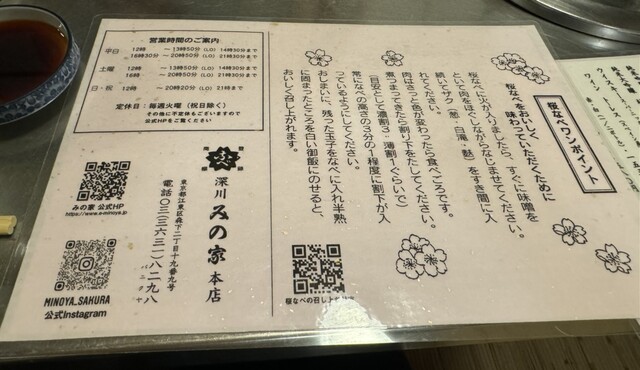 桜なべワンポイント
桜なべをおいしく
味わっていただくために
桜なべに火が入りましたら、すぐに味噌を
といて肉をほぐしながらなじませてください。
続いてザク(葱・白滝・麩)をすき間に入
れてください。
肉はさっと色が変わったら食べごろです。
煮つまってきたら割り下をたしてください。
(目安として濃割3:薄割1ぐらいで)
常になべの高さの3分の1程度に割下が入
っているようにしてください。
おしまいに、残った玉子をなべに入れ半熟
に固まったところを白い御飯にのせると、
おいしく召し上がれます。
営業時間のご案内
平日 12時 〜13時50分(LO) 14時30分まで
16時30分 〜20時50分(LO) 21時30分まで
土曜 12時 〜13時50分(LO) 14時30分まで
16時 〜20時50分(LO) 21時30分まで
日・祝 12時 〜20時20分(LO) 21時まで
定休日:毎週火曜(祝日除く)
その他に不定休もございますので
公式HPをご覧ください
深川 みの家 本店
東京都江東区森下二丁目十九番九号
電話〇三(三六三一)八二九八
みの家 公式HP
https://www.e-minoya.jp
MINOYA_SAKURA
公式Instagram